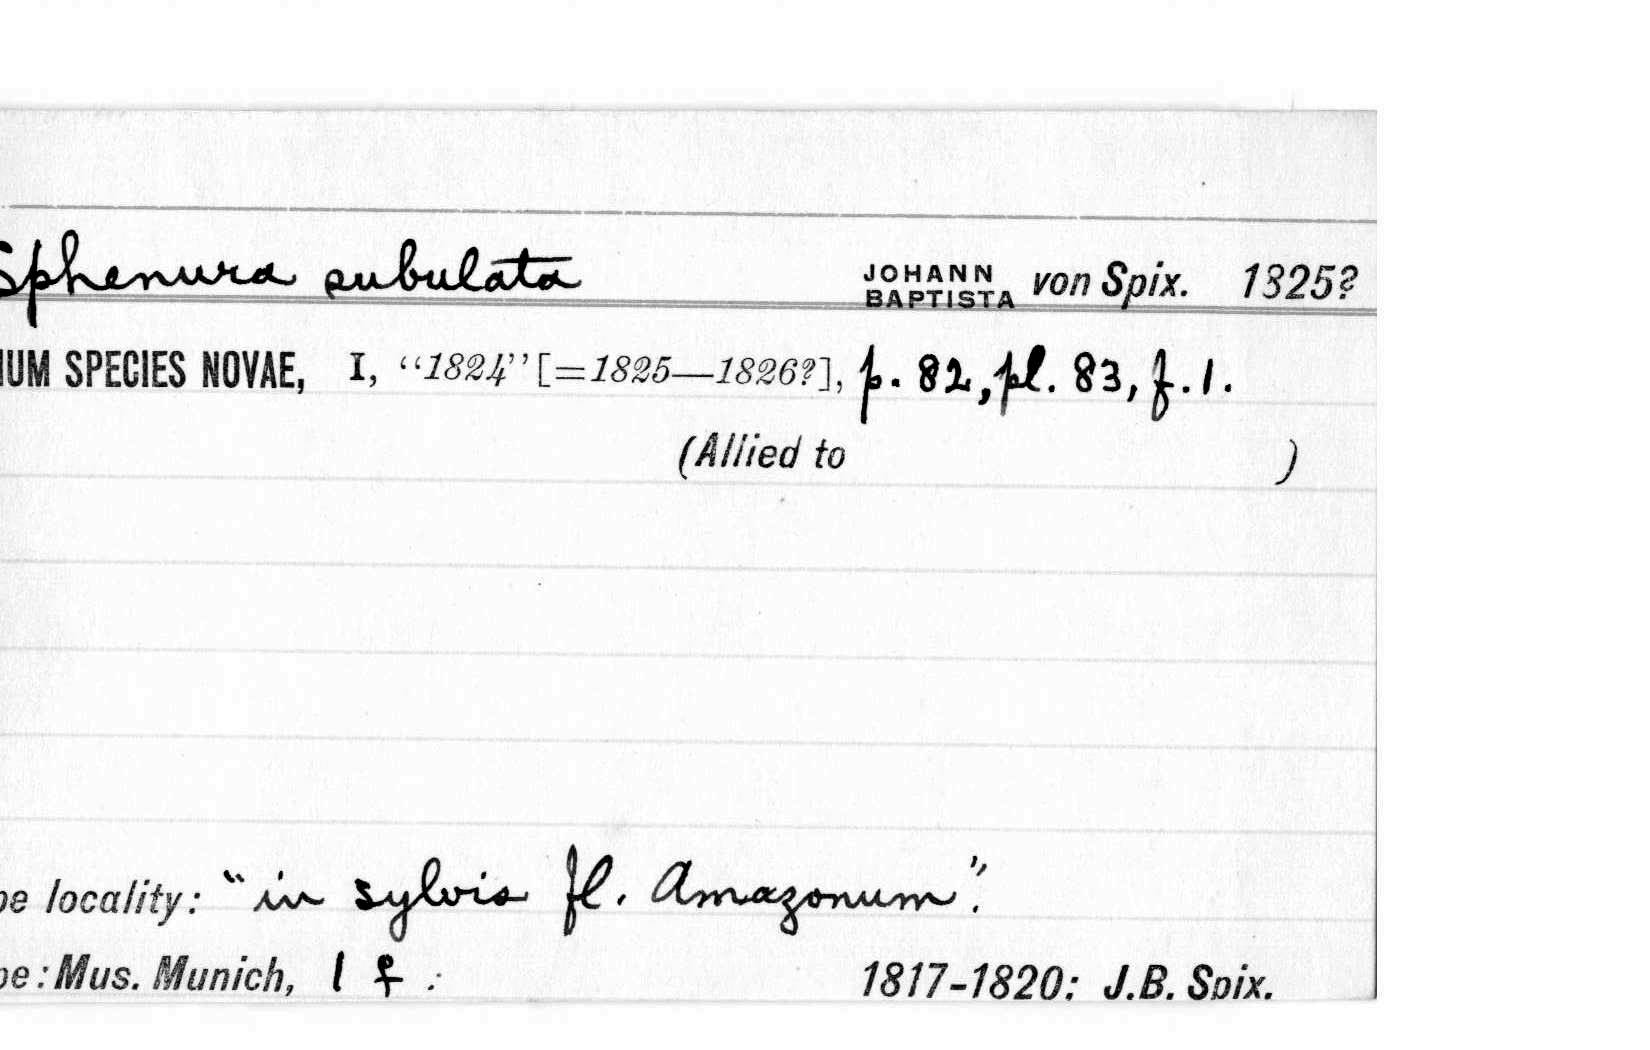 Sphenura subulata JOHANN BAPTISTA von Spix. 1825?
IUM SPECIES NOVAE, I, “1824” [=1825—1826?], p. 82, pl. 83, f. 1.
(Allied to )
pe locality: “in sylvis fl. Amazonum”.
pe: Mus. Munich, 1 ♀. 1817-1820; J.B. Spix.